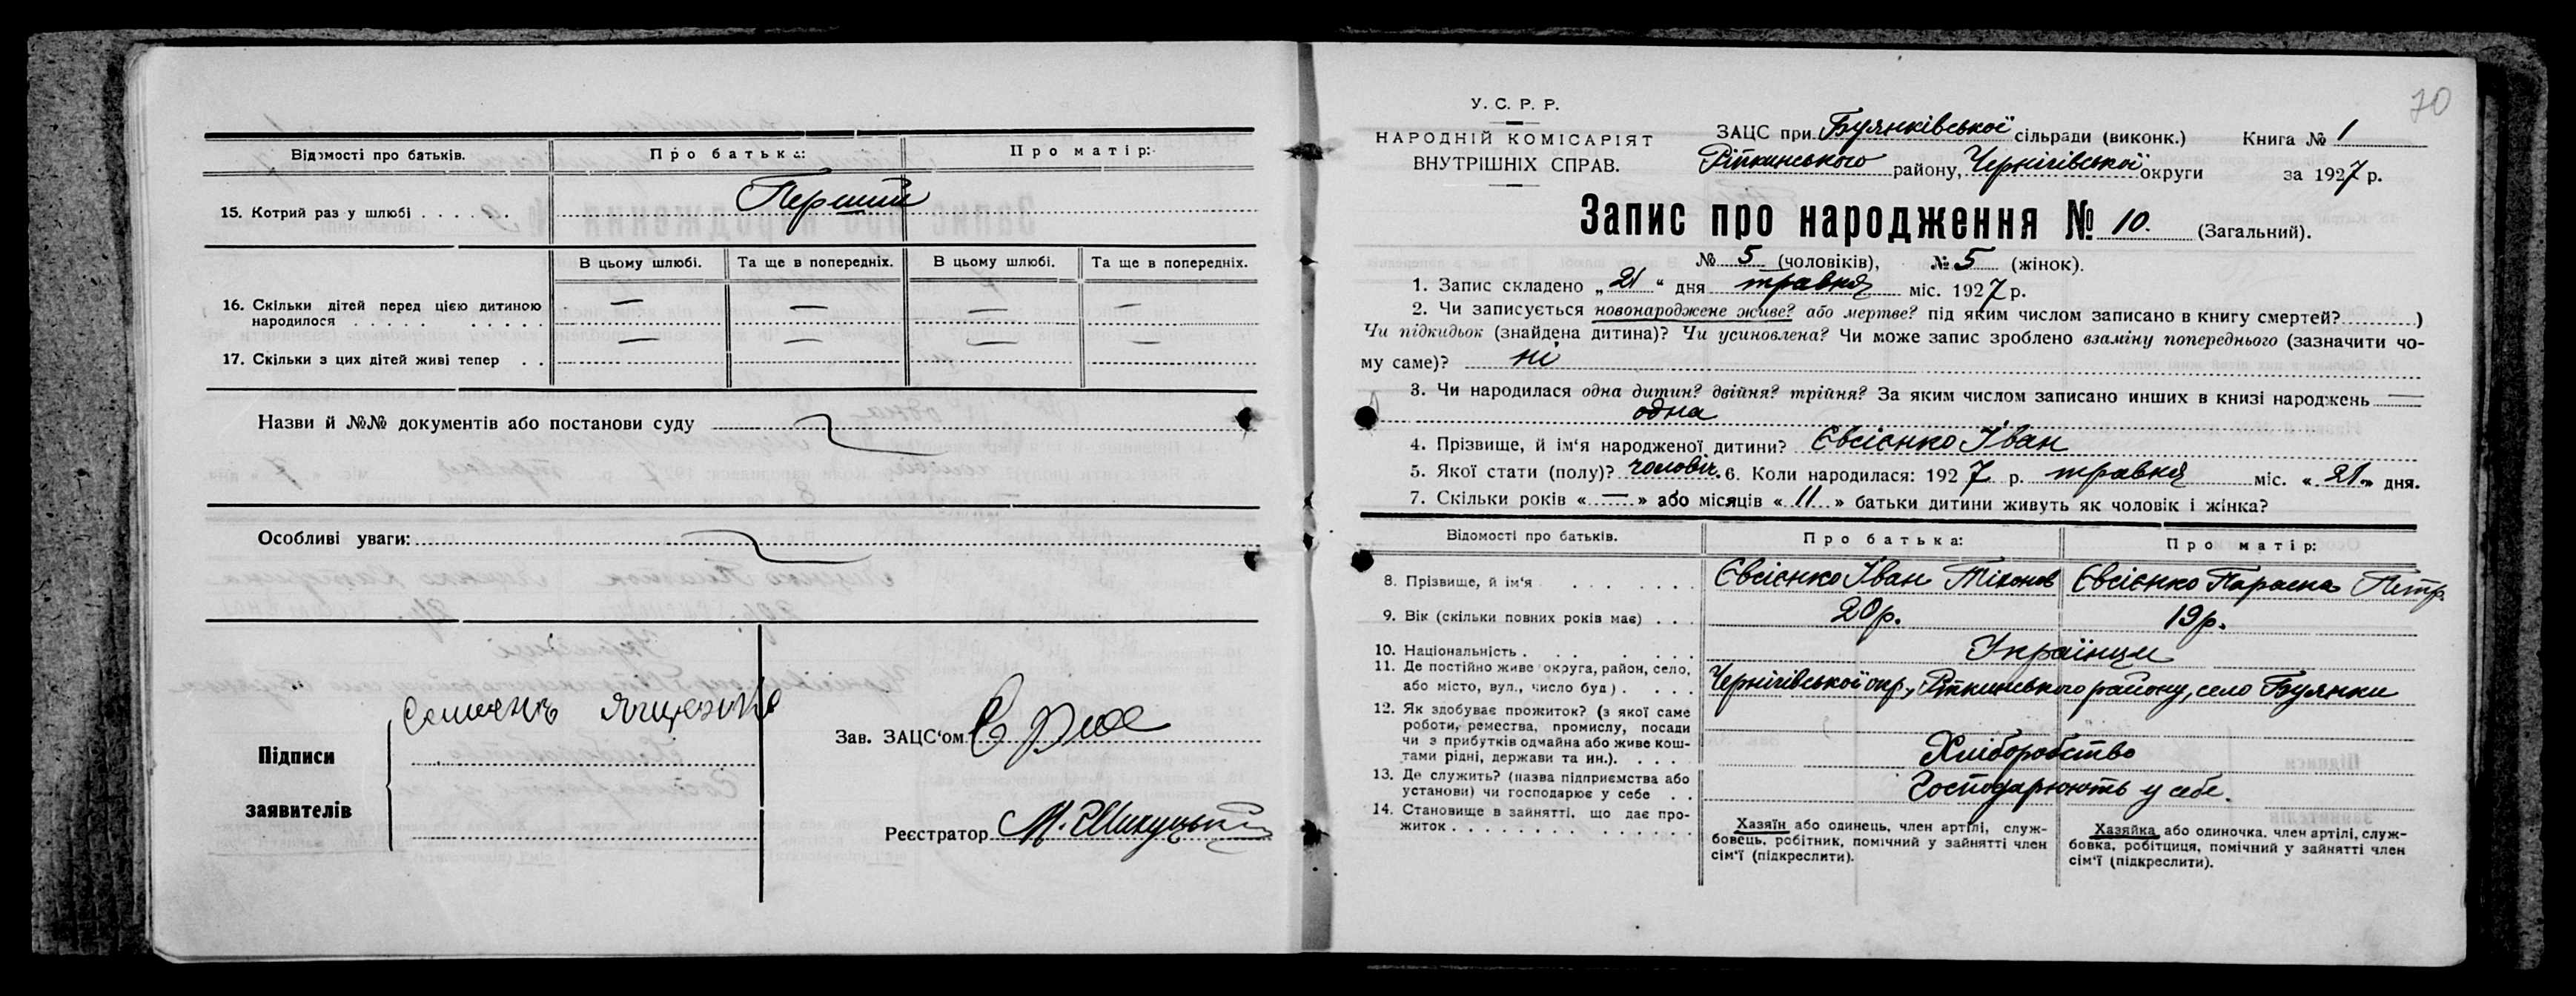 Відомості про батьків.
Про батька:
Про матір:
15. Котрий раз у шлюбі . . . . . .
Перший
В цьому шлюбі.
Та ще в попередніх.
В цьому шлюбі.
Та ще в попередніх.
16. Скільки дітей перед цією дитиною
народилося . . . . . . . . . .
— — — —
17. Скільки з цих дітей живі тепер . .
— — — —
Назви й №№ документів або постанови суду
Особливі уваги:
Підписи
заявителів
Зав. ЗАЦС'ом
Реєстратор
70
У. С. Р. Р.
НАРОДНІЙ КОМІСАРІЯТ
ВНУТРІШНІХ СПРАВ.
ЗАЦС при Буянківської сільради (виконк.)
Книга № 1
Ріпкинського району, Чернігівської округи
за 1927 р.
Запис про народження № 10. (Загальний).
№ 5 (чоловіків), № 5 (жінок).
1. Запис складено „ 21 “ дня травня міс. 1927 р.
2. Чи записується новонароджене живе? або мертве? під яким числом записано в книгу смертей? )
Чи підкидьок (знайдена дитина)? Чи усиновлена? Чи може запис зроблено взаміну попереднього (зазначити чо-
му саме)? ні
3. Чи народилася одна дитин? двійня? трійня? За яким числом записано инших в книзі народжень —
одна
4. Прізвище, й ім'я народженої дитини? Євсієнко Іван
5. Якої стати (полу)? чоловіч. 6. Коли народилася: 1927 р. травня міс. « 21 » дня.
7. Скільки років « — » або місяців « 11 » батьки дитини живуть як чоловік і жінка?
Відомості про батьків.
Про батька:
Про матір:
8. Прізвище, й ім'я . . . . . . .
Євсієнко Іван Тіхонов
Євсієнко Параска Петр.
9. Вік (скільки повних років має) . . .
20 р.
19 р.
10. Національність . . . . . . .
Українци
11. Де постійно живе округа, район, село,
або місто, вул., число буд.) . . . .
Чернігівської окр., Ріпкинського району, село Буянки
12. Як здобуває прожиток? (з якої саме
роботи, ремества, промислу, посади
чи з прибутків одмайна або живе кош-
тами рідні, держави та ин.). . . . .
Хліборобство
13. Де служить? (назва підприємства або
установи) чи господарює у себе . .
Господарюють у себе.
14. Становище в зайнятті, що дає про-
житок . . . . . . . . . . . . .
Хазяїн або одинець, член артілі, служ-
бовець, робітник, помічний у зайнятті член
сім'ї (підкреслити).
Хазяйка або одиночка, член артілі, служ-
бовка, робітниця, помічний у зайнятті член
сім'ї (підкреслити).